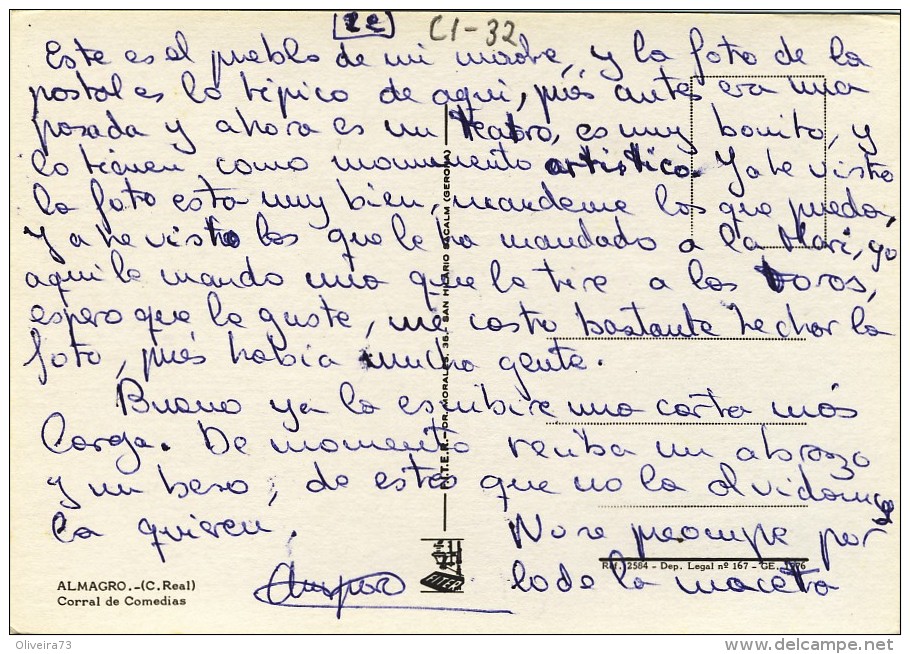 (2e) C1-32
Este es el pueblo de mi madre, y la foto de la
postal es lo tipico de aqui, pués antes era una
posada y ahora es un teatro, es muy bonito, y
lo tienen como monumento artistico. Ya he visto
la foto esta muy bien, mandeme las que pueda,
Ya he visto las que le ha mandado a la Mari, yo
aqui le mando una que le tire a los toros,
espero que le guste, me costo bastante hechar la
foto, pués habia mucha gente.
Bueno ya le escribire una carta más
larga. De momento reciba un abrazo
y un beso, de estos que no la olvidan y
la quieren.
Amparo
No se preocupe por
lo de la maceta
ALMAGRO.-(C. Real)
Corral de Comedias
F.I.T.E.R.-DR. MORALES, 36.- SAN HILARIO SACALM (GERONA)
FITER
Ref. 2584 - Dep. Legal nº 167 - GE., 1976
Oliveira73
www.delcampe.net